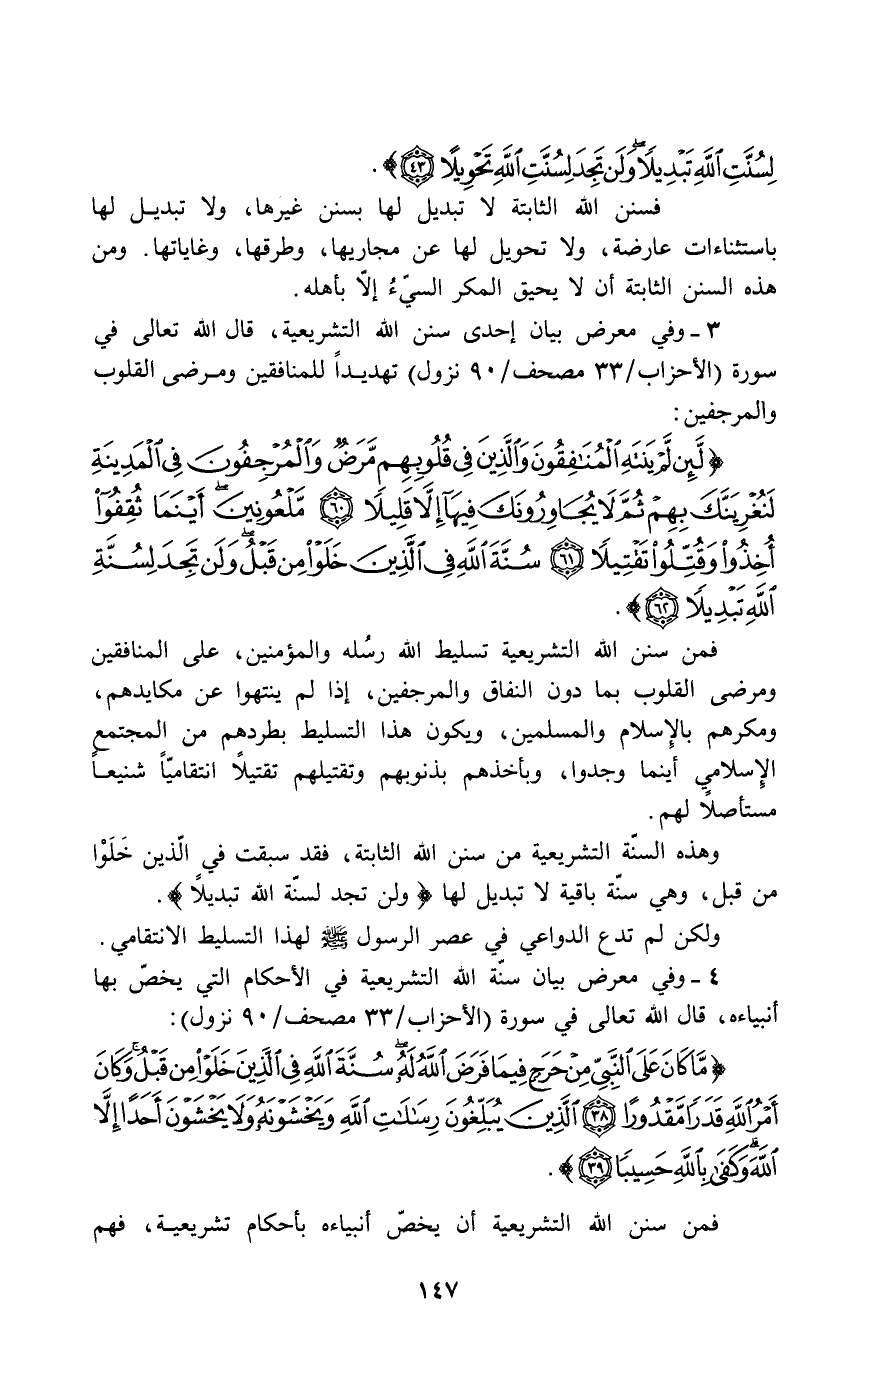 لِسُنَّتِ ٱللَّهِ تَبْدِيلًا ۖ وَلَن تَجِدَ لِسُنَّتِ ٱللَّهِ تَحْوِيلًا ﴿٤٣﴾ ﴾ .
فسنن الله الثابتة لا تبديل لها بسنن غيرها، ولا تبديـل لها
باستثناءات عارضة، ولا تحويل لها عن مجاريها، وطرقها، وغاياتها. ومن
هذه السنن الثابتة أن لا يحيق المكر السيّءُ إلّا بأهله.
٣ ـ وفي معرض بيان إحدى سنن الله التشريعية، قال الله تعالى في
سورة (الأحزاب/٣٣ مصحف/٩٠ نزول) تهديـداً للمنافقين ومـرضى القلوب
والمرجفين:
﴿ لَّئِن لَّمْ يَنتَهِ ٱلْمُنَـٰفِقُونَ وَٱلَّذِينَ فِى قُلُوبِهِم مَّرَضٌ وَٱلْمُرْجِفُونَ فِى ٱلْمَدِينَةِ
لَنُغْرِيَنَّكَ بِهِمْ ثُمَّ لَا يُجَاوِرُونَكَ فِيهَآ إِلَّا قَلِيلًا ﴿٦٠﴾ مَّلْعُونِينَ ۖ أَيْنَمَا ثُقِفُوٓا۟
أُخِذُوا۟ وَقُتِّلُوا۟ تَقْتِيلًا ﴿٦١﴾ سُنَّةَ ٱللَّهِ فِى ٱلَّذِينَ خَلَوْا۟ مِن قَبْلُ ۖ وَلَن تَجِدَ لِسُنَّةِ
ٱللَّهِ تَبْدِيلًا ﴿٦٢﴾ ﴾ .
فمن سنن الله التشريعية تسليط الله رسُله والمؤمنين، على المنافقين
ومرضى القلوب بما دون النفاق والمرجفين، إذا لم ينتهوا عن مكايدهم،
ومكرهم بالإسلام والمسلمين، ويكون هذا التسليط بطردهم من المجتمع
الإسلامي أينما وجدوا، وبأخذهم بذنوبهم وتقتيلهم تقتيلاً انتقاميّاً شنيعـاً
مستأصلاً لهم.
وهذه السنّة التشريعية من سنن الله الثابتة، فقد سبقت في الّذين خَلَوْا
من قبل، وهي سنّة باقية لا تبديل لها ﴿ ولن تجد لسنّة الله تبديلاً ﴾ .
ولكن لم تدع الدواعي في عصر الرسول ﷺ لهذا التسليط الانتقامي.
٤ ـ وفي معرض بيان سنّة الله التشريعية في الأحكام التي يخصّ بها
أنبياءه، قال الله تعالى في سورة (الأحزاب/٣٣ مصحف/٩٠ نزول):
﴿ مَّا كَانَ عَلَى ٱلنَّبِىِّ مِنْ حَرَجٍ فِيمَا فَرَضَ ٱللَّهُ لَهُۥ ۖ سُنَّةَ ٱللَّهِ فِى ٱلَّذِينَ خَلَوْا۟ مِن قَبْلُ ۚ وَكَانَ
أَمْرُ ٱللَّهِ قَدَرًا مَّقْدُورًا ﴿٣٨﴾ ٱلَّذِينَ يُبَلِّغُونَ رِسَـٰلَـٰتِ ٱللَّهِ وَيَخْشَوْنَهُۥ وَلَا يَخْشَوْنَ أَحَدًا إِلَّا
ٱللَّهَ ۗ وَكَفَىٰ بِٱللَّهِ حَسِيبًا ﴿٣٩﴾ ﴾ .
فمن سنن الله التشريعية أن يخصّ أنبياءه بأحكام تشريعيـة، فهم
١٤٧